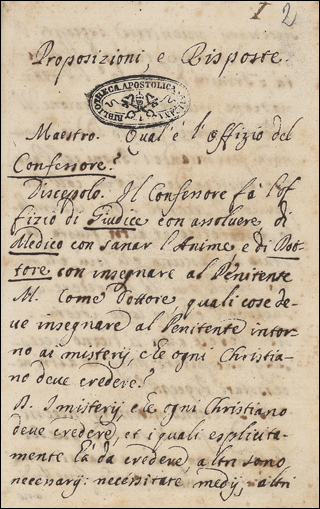 1 2
Proposizioni, e Risposte.
BIBLIOTHECA APOSTOLICA
Maestro. Qual'è l'Offizio del
Confessore?
Discepolo. Il Confessore fà l'of
fizio di Giudice con assolvere, di
Medico con sanar l'Anime e di Dot-
tore, con insegnare al Penitente
M. Come Dottore quali cose de-
ve insegnare al Penitente intor-
no ai misterij, che ogni Christia-
no deve credere?
D. I misterij che ogni Christiano
deve credere, et i quali esplicita-
mente hà da credere, altri sono
necessarij necessitate medij, altri